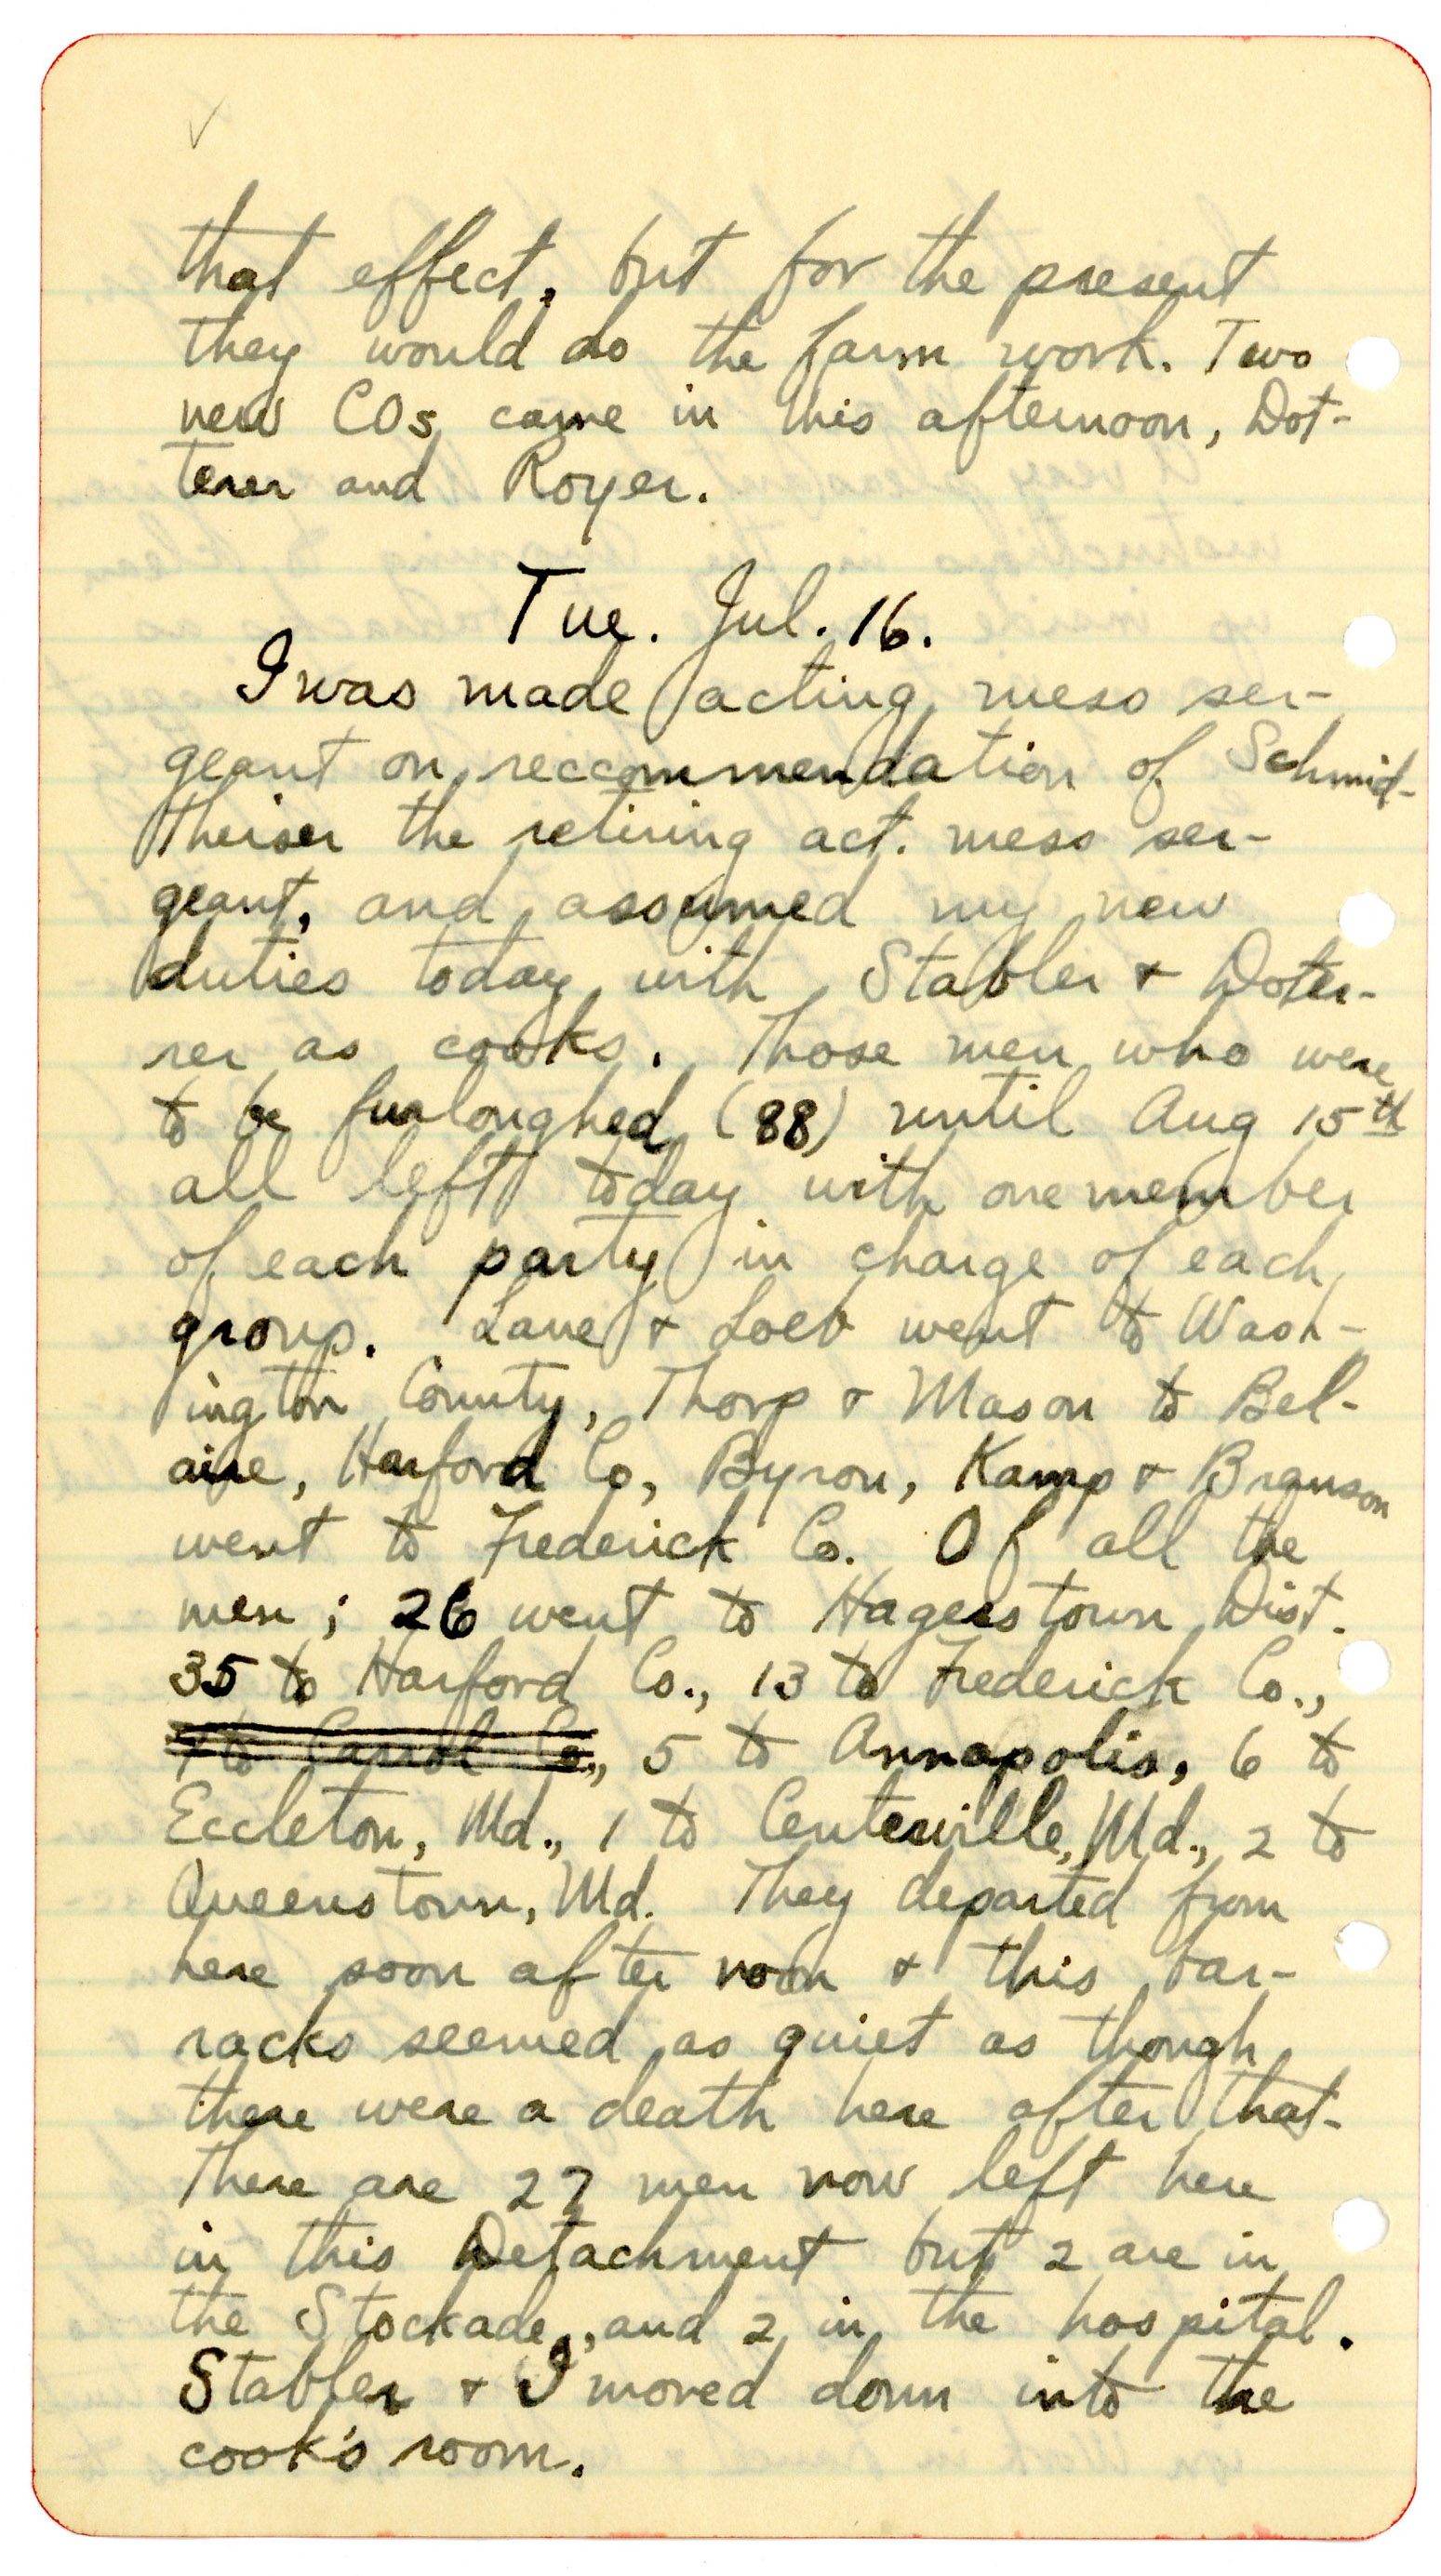 that effect, but for the present
they would do the farm work. Two
new COs came in this afternoon, Dot-
terer and Royer.
Tue. Jul. 16.
I was made acting mess ser-
geant on reccommendation of Schmid-
theiser the retiring act. mess ser-
geant, and assumed my new
duties today with Stabler & Doter-
rer as cooks. Those men who were
to be furloughed (88) until Aug 15th
all left today with one member
of each party in charge of each
group. Lane & Loeb went to Wash-
ington County, Thorp & Mason to Bel-
aire, Harford Co, Byron, Kamp & Branson
went to Frederick Co. Of all the
men; 26 went to Hagerstown Dist.
35 to Harford Co., 13 to Frederick Co.,
1 to Carrol Co., 5 to Annapolis, 6 to
Eccleton, Md., 1 to Centerville, Md., 2 to
Queenstown, Md. They departed from
here soon after noon & this bar-
racks seemed as quiet as though
there were a death here after that.
There are 27 men now left here
in this Detachment but 2 are in
the Stockade, and 2 in the hospital.
Stabler & I moved down into the
cook's room.